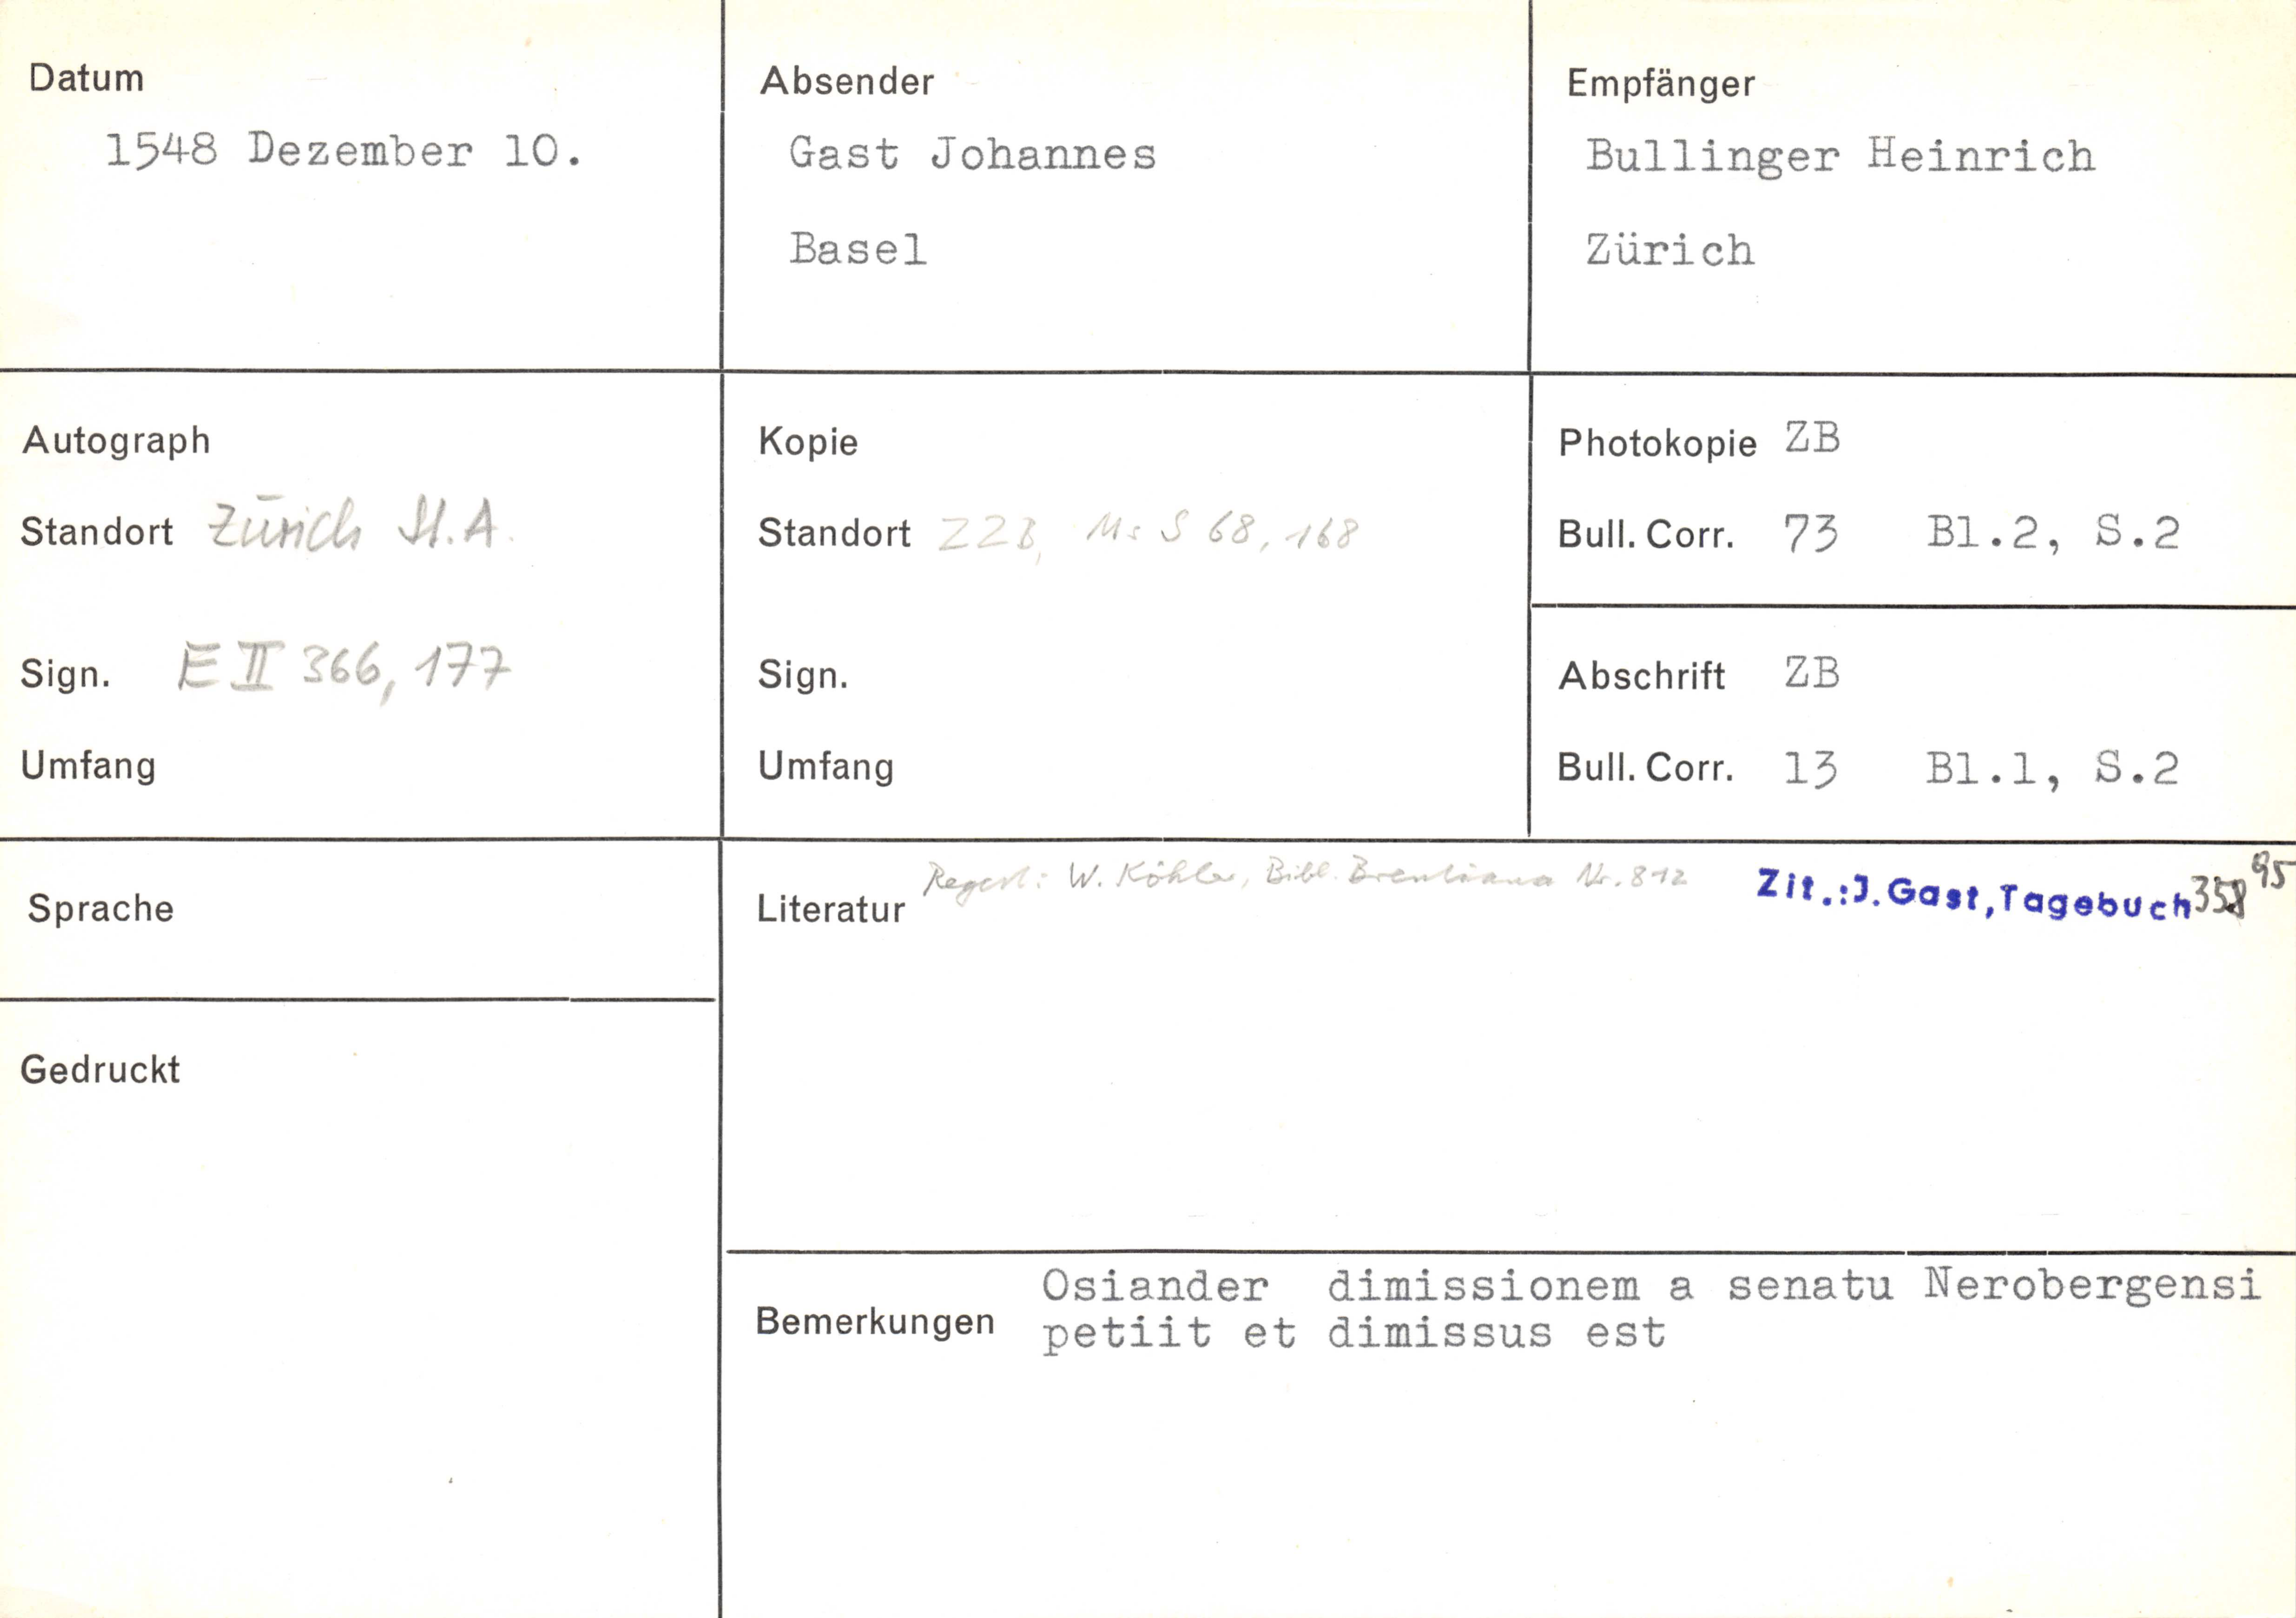 Datum
1548 Dezember 10.
Absender
Gast Johannes
Basel
Empfänger
Bullinger Heinrich
Zürich
Autograph
Standort Zürich St.A.
Sign. E II 366, 177
Umfang
Kopie
Standort ZZB, Ms S 68, 168
Sign.
Umfang
Photokopie ZB
Bull. Corr. 73 Bl.2, S.2
Abschrift ZB
Bull. Corr. 13 Bl.1, S.2
Sprache
Gedruckt
Literatur Regest: W. Köhler, Bibl. Brentiana Nr. 812 Zit.:J.Gast,Tagebuch 95
Bemerkungen Osiander dimissionem a senatu Nerobergensi
petiit et dimissus est